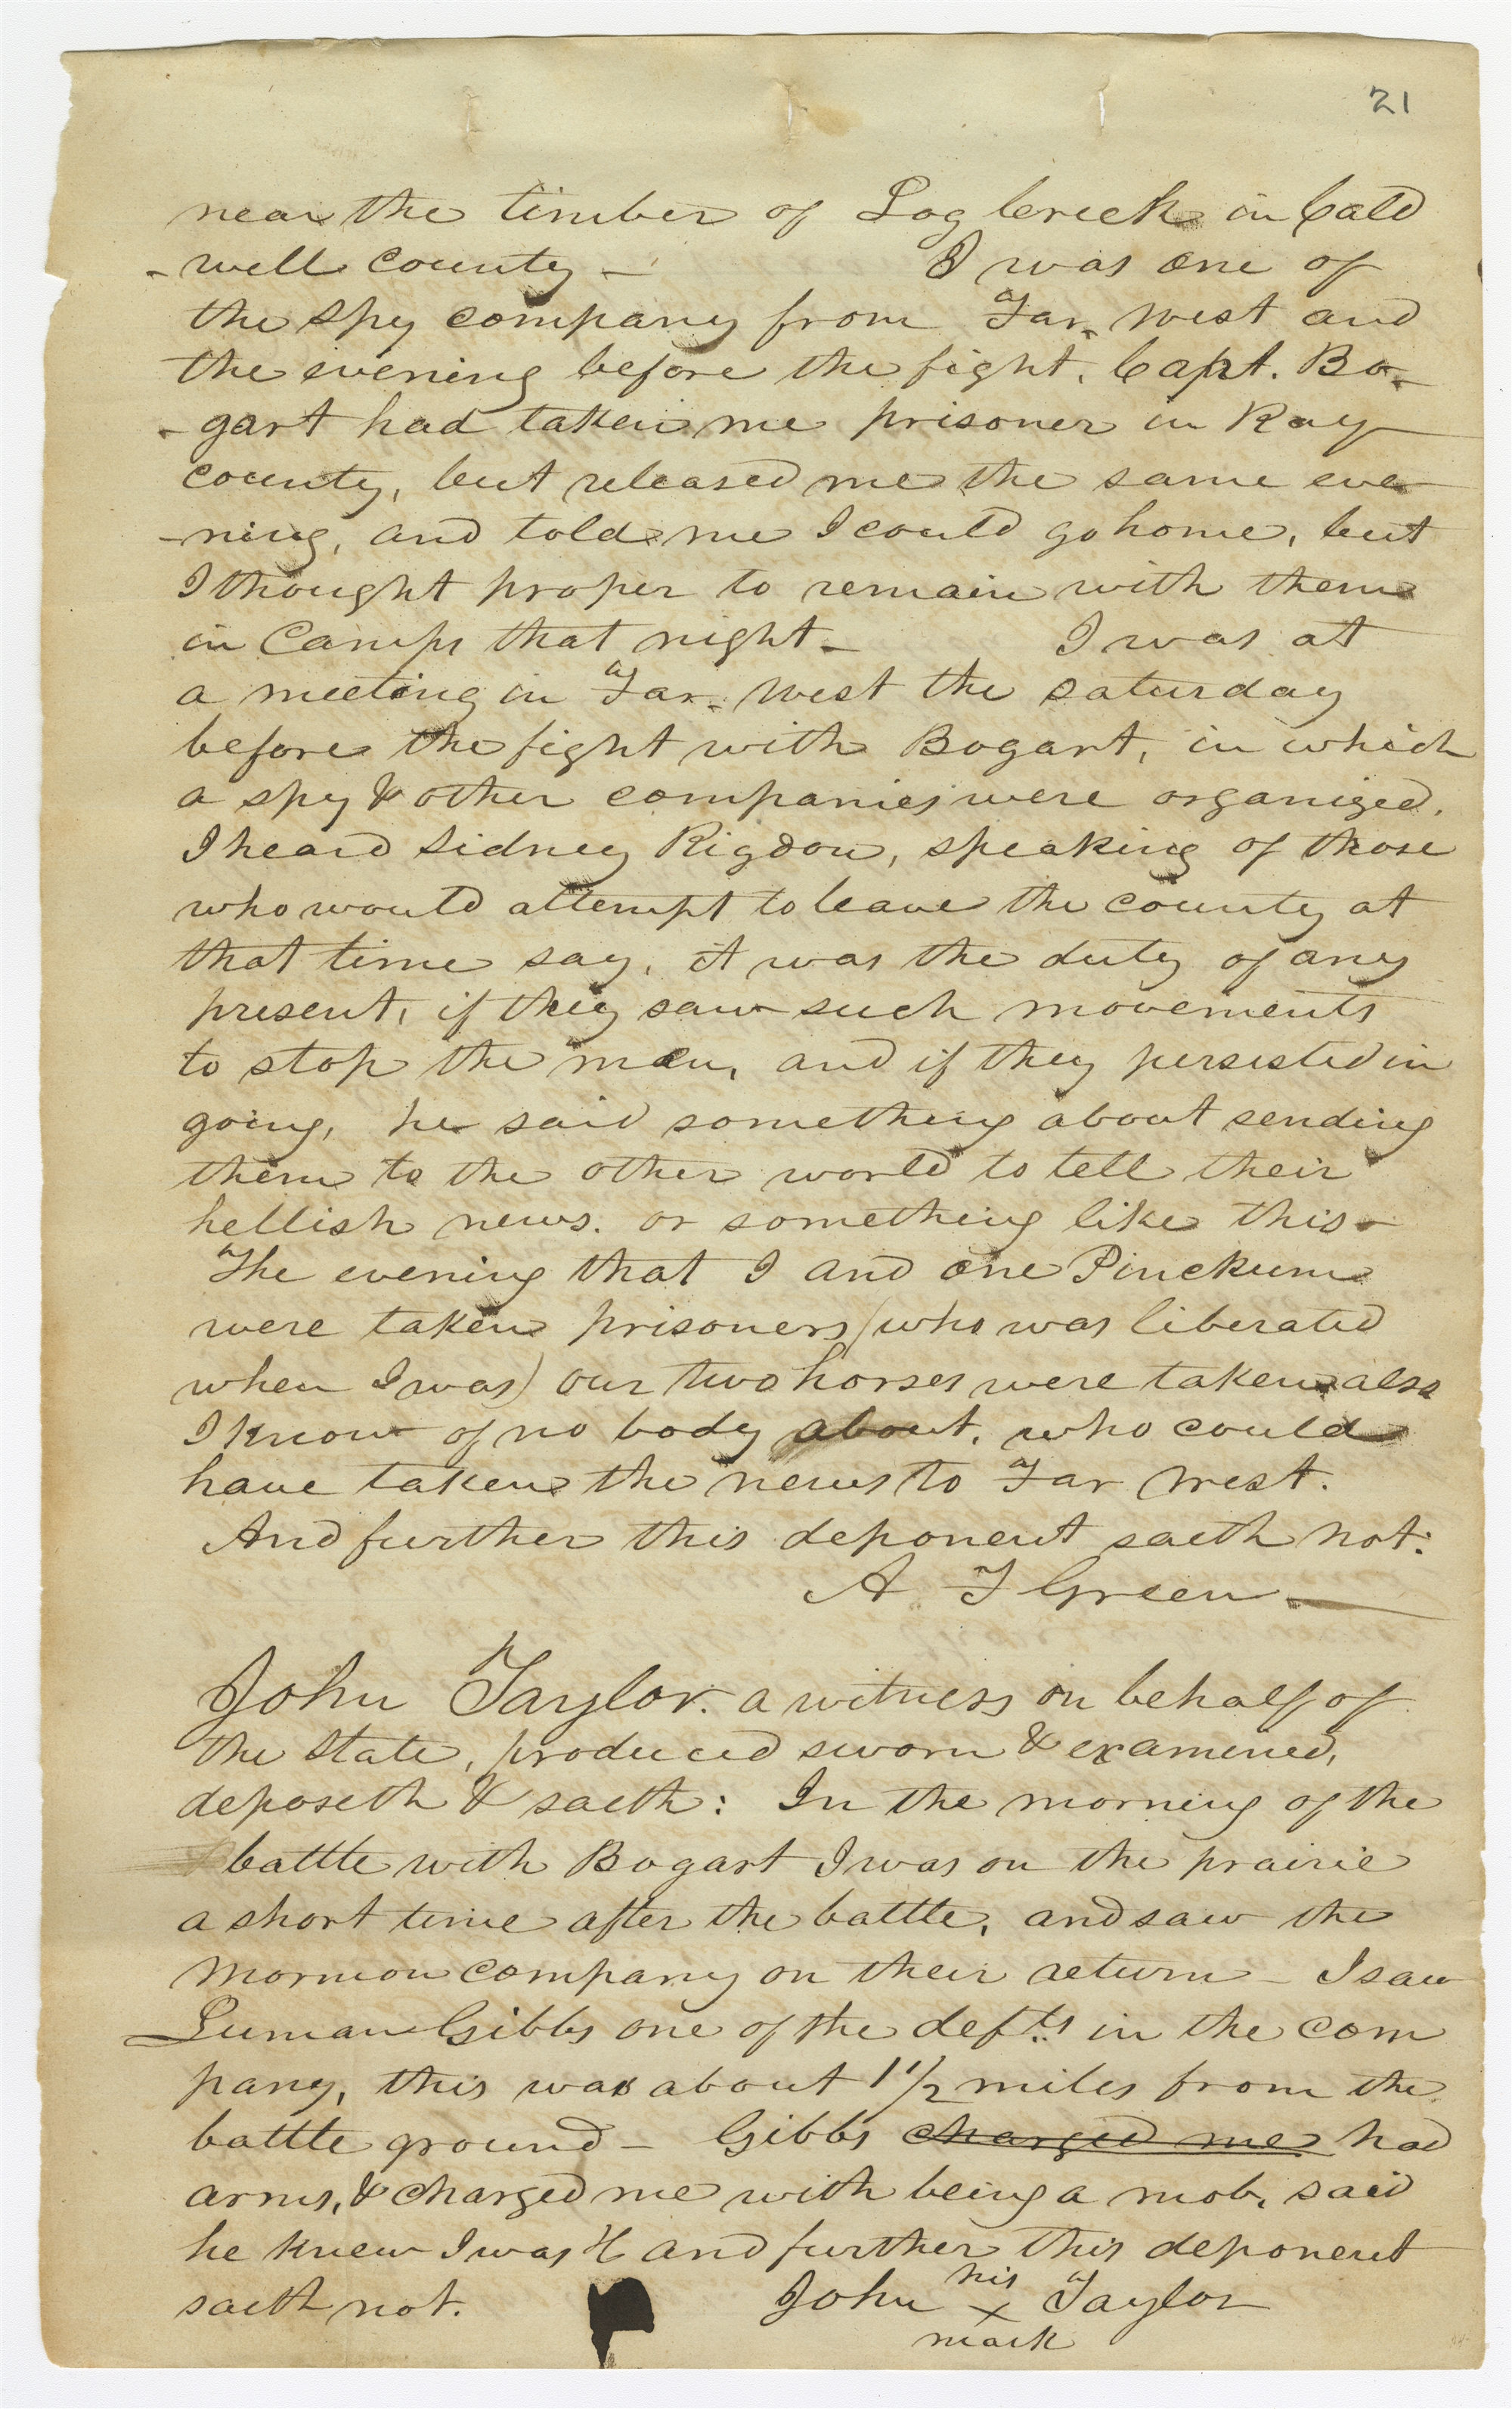 21
near the timber of Log Creek in Cald
-well county - I was one of
the spy company from Far-West and
the evening before the fight, Capt. Bo-
-gart had taken me prisoner in Ray
county, but released me the same eve-
-ning, and told me I could go home, but
I thought proper to remain with them
in Camp that night - I was at
a meeting in Far-West the saturday
before the fight with Bogart, in which
a spy & other companies were organized.
I heard Sidney Rigdon, speaking of those
who would attempt to leave the county at
that time say, it was the duty of any
present, if they saw such movements
to stop the men, and if they persisted in
going, he said something about sending
them to the other world to tell their
hellish news. or something like this -
The evening that I and one Pinckum
were taken prisoners (who was liberated
when I was) our two horses were taken also
I know of no body about, who could
have taken the news to Far West.
And further this deponent saeth not:
A F Green -
John Taylor. a witness on behalf of
the State, produced sworn & examined,
deposeth & saeth: In the morning of the
battle with Bogart I was on the prairie
a short time after the battle, and saw the
mormon company on their return - I saw
Luman Gibbs one of the defts in the com
pany, this was about 1 1/2 miles from the
battle ground - Gibbs charged me had
arms, & charged me with being a mob, said
he knew I was & and further this deponent
saeth not. John his x Taylor
mark